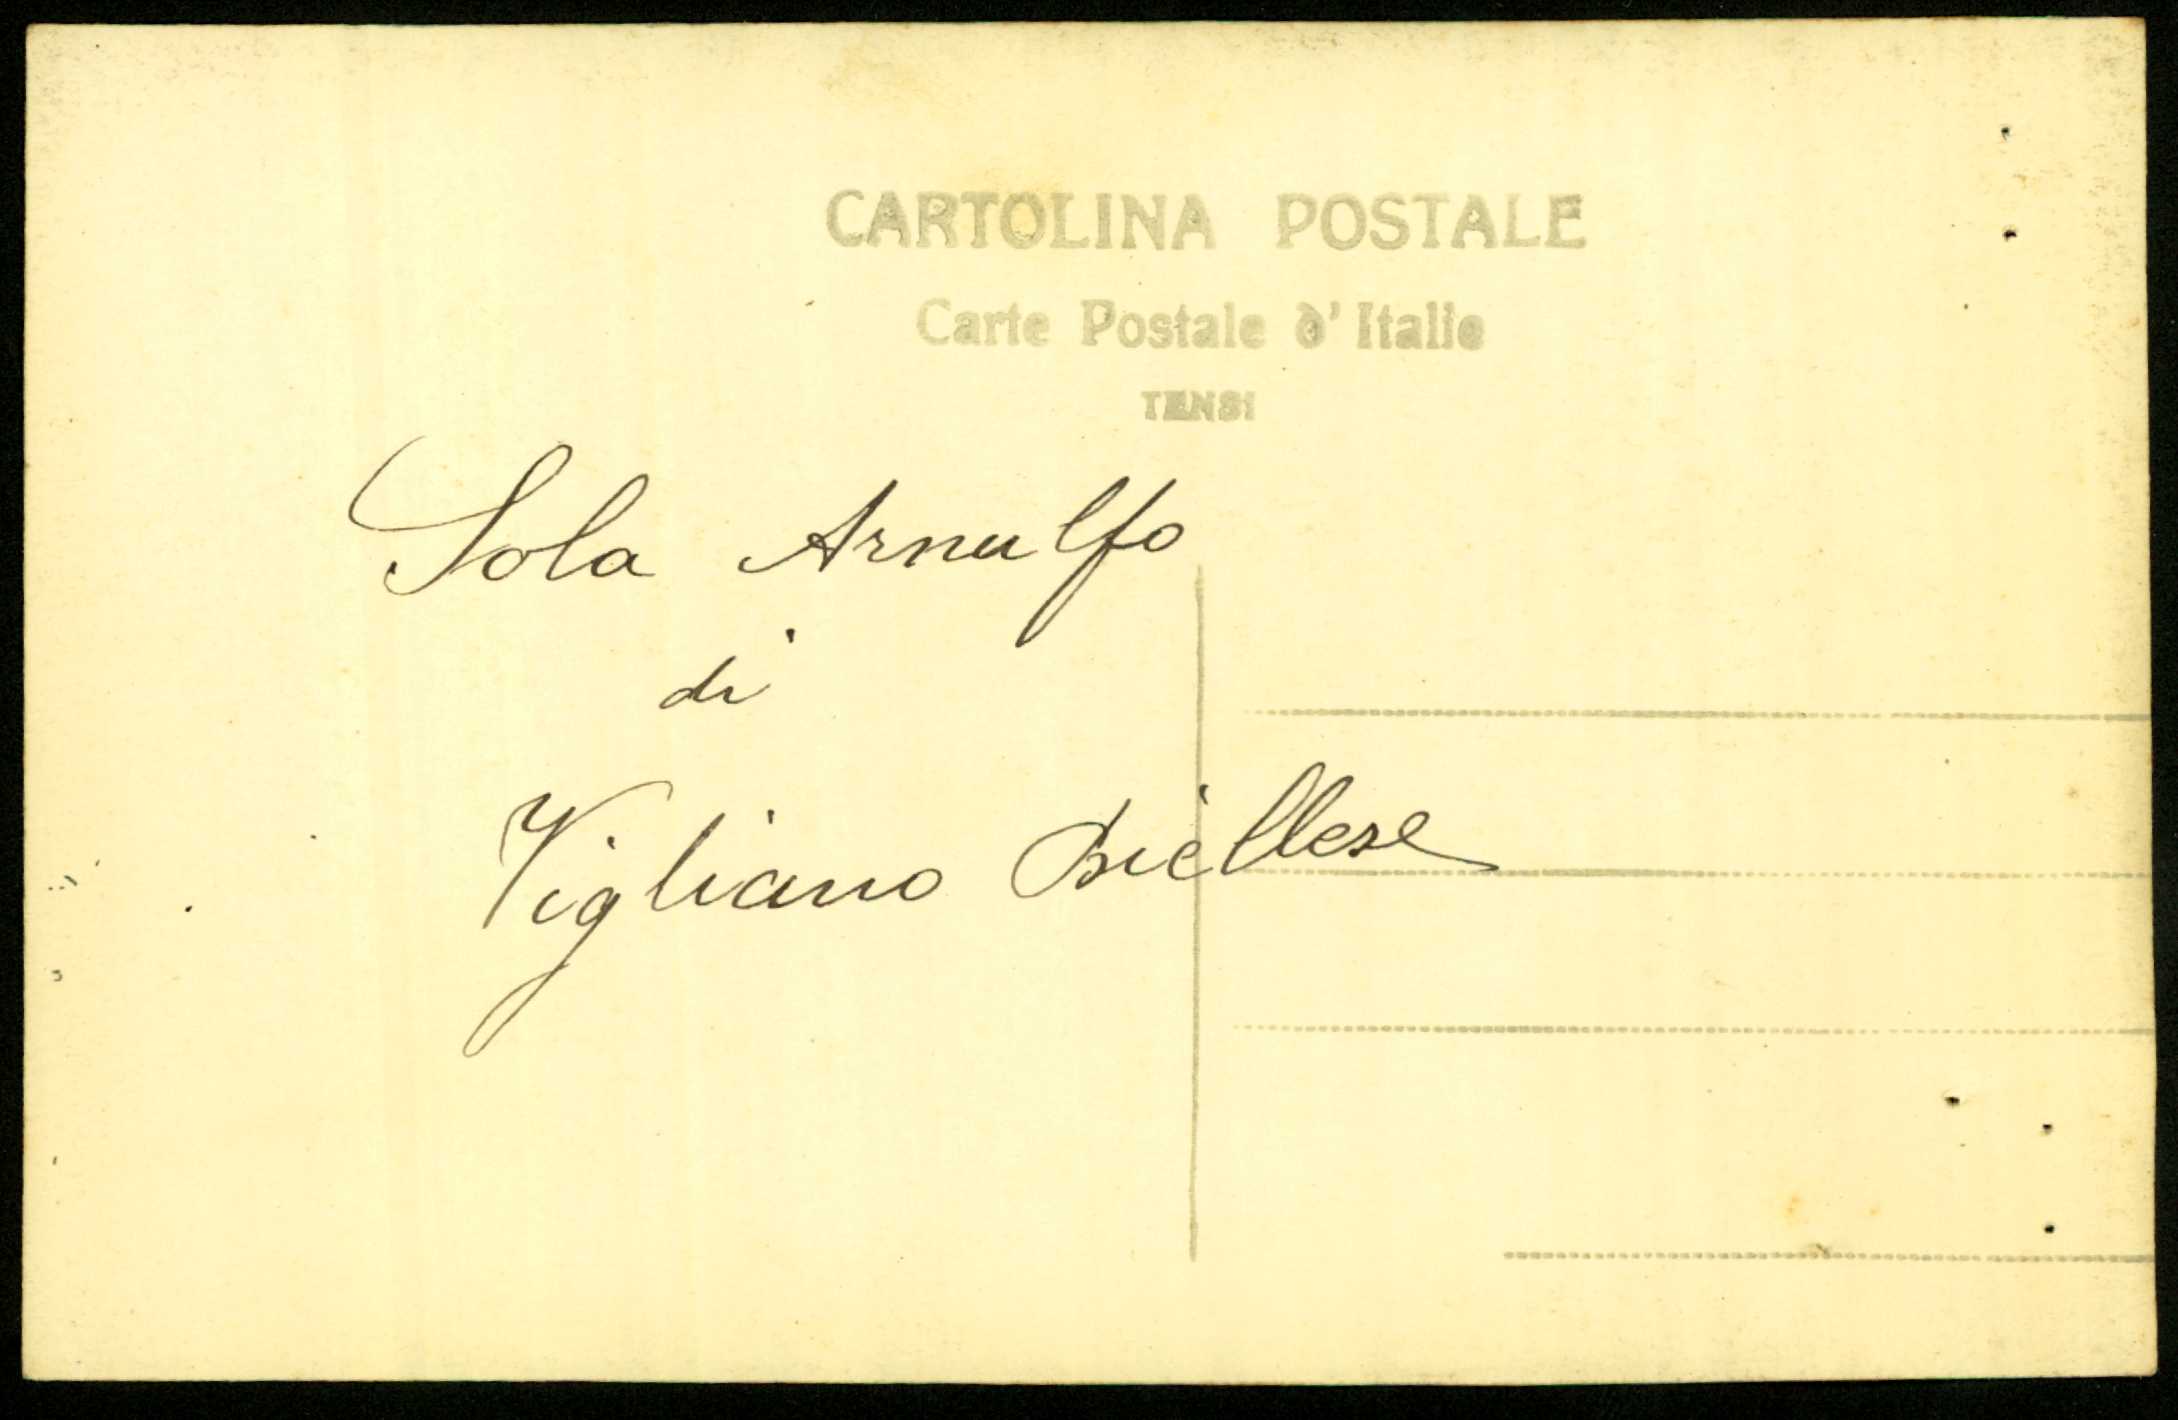 CARTOLINA POSTALE
Carte Postale d'Italie
TENSI
Sola Arnulfo
di
Vigliano Biellese